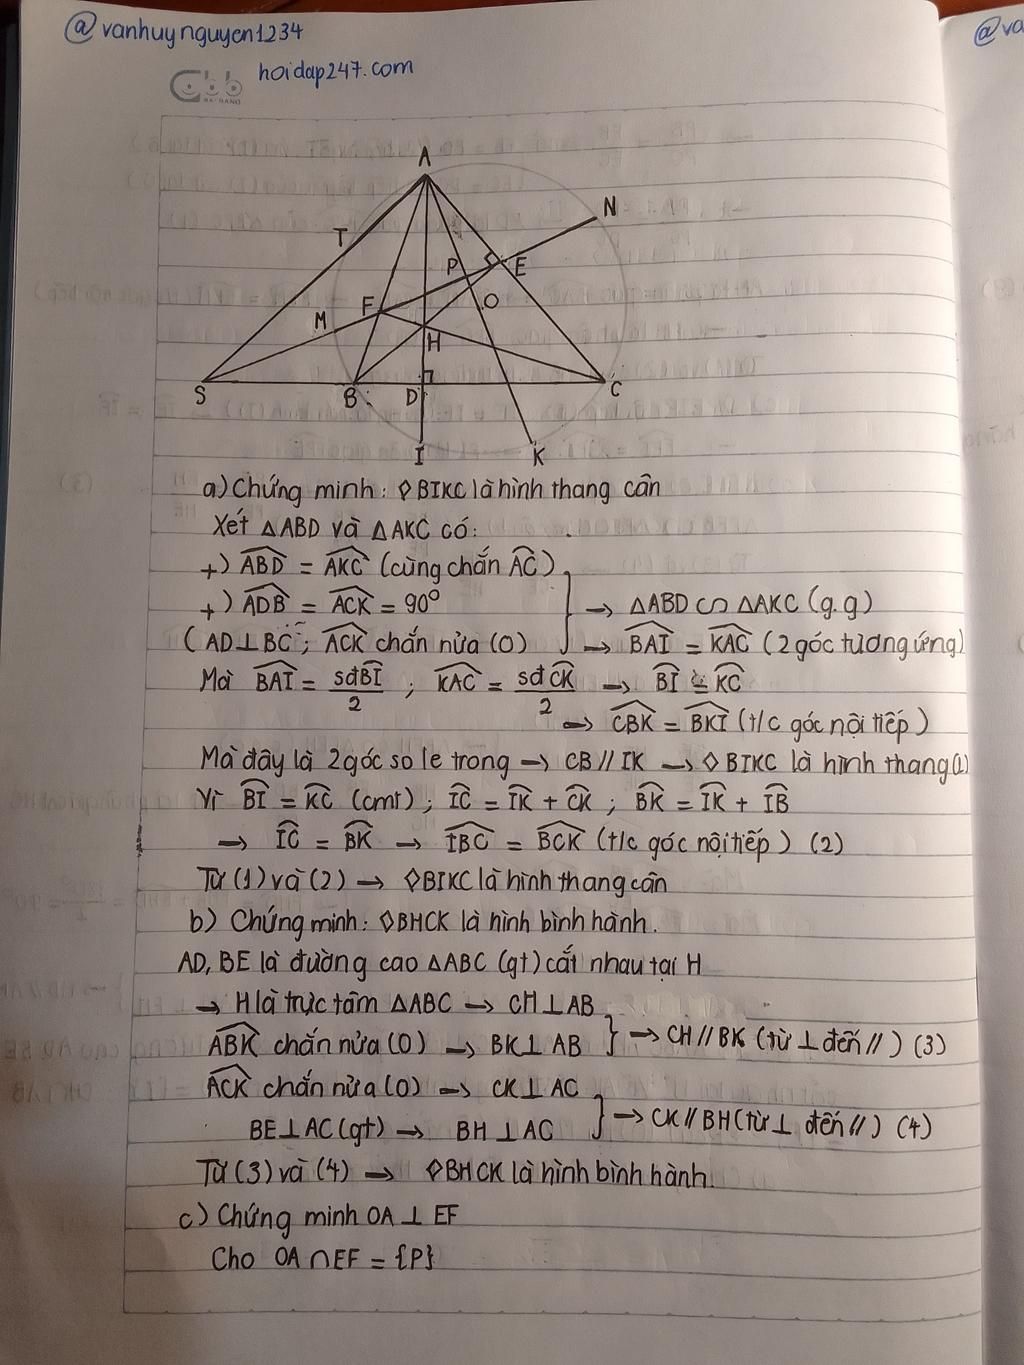 @vanhuynguyen1234
@va
hoidap247.com
A
N
T
P
E
O
F
M
H
S
B
D
C
I
K
a) Chứng minh: ◊BIKC là hình thang cân
Xét △ABD và △AKC có:
+) ABD = AKC (cùng chắn AC)
+) ADB = ACK = 90° → △ABD ∽ △AKC (g.g)
(AD⊥BC; ACK chắn nửa (O) → BAI = KAC (2 góc tương ứng)
Mà BAI = sđBI/2 ; KAC = sđCK/2 → BI = KC
→ CBK = BKI (t/c góc nội tiếp)
Mà đây là 2 góc so le trong → CB // IK → ◊BIKC là hình thang (1)
Vì BI = KC (cmt) ; IC = IK + CK ; BK = IK + IB
→ IC = BK → IBC = BCK (t/c góc nội tiếp) (2)
Từ (1) và (2) → ◊BIKC là hình thang cân
b) Chứng minh: ◊BHCK là hình bình hành.
AD, BE là đường cao △ABC (gt) cắt nhau tại H
→ H là trực tâm △ABC → CH⊥AB
ABK chắn nửa (O) → BK⊥AB } → CH // BK (từ ⊥ đến //) (3)
ACK chắn nửa (O) → CK⊥AC
BE⊥AC (gt) → BH⊥AC } → CK // BH (từ ⊥ đến //) (4)
Từ (3) và (4) → ◊BHCK là hình bình hành.
c) Chứng minh OA ⊥ EF
Cho OA ∩ EF = {P}